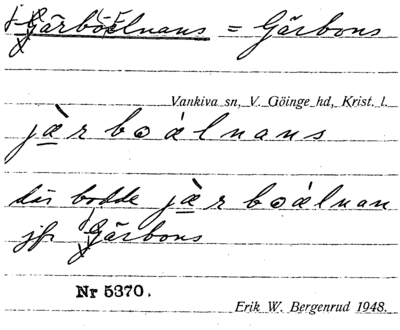 Gärboelnans = Gärbons
Vankiva sn, V. Göinge hd, Krist. l.
jæ̀r boálnans
där bodde jæ̀r boálnan
jfr Gärbons
Nr 5370.
Erik W. Bergenrud 1948.